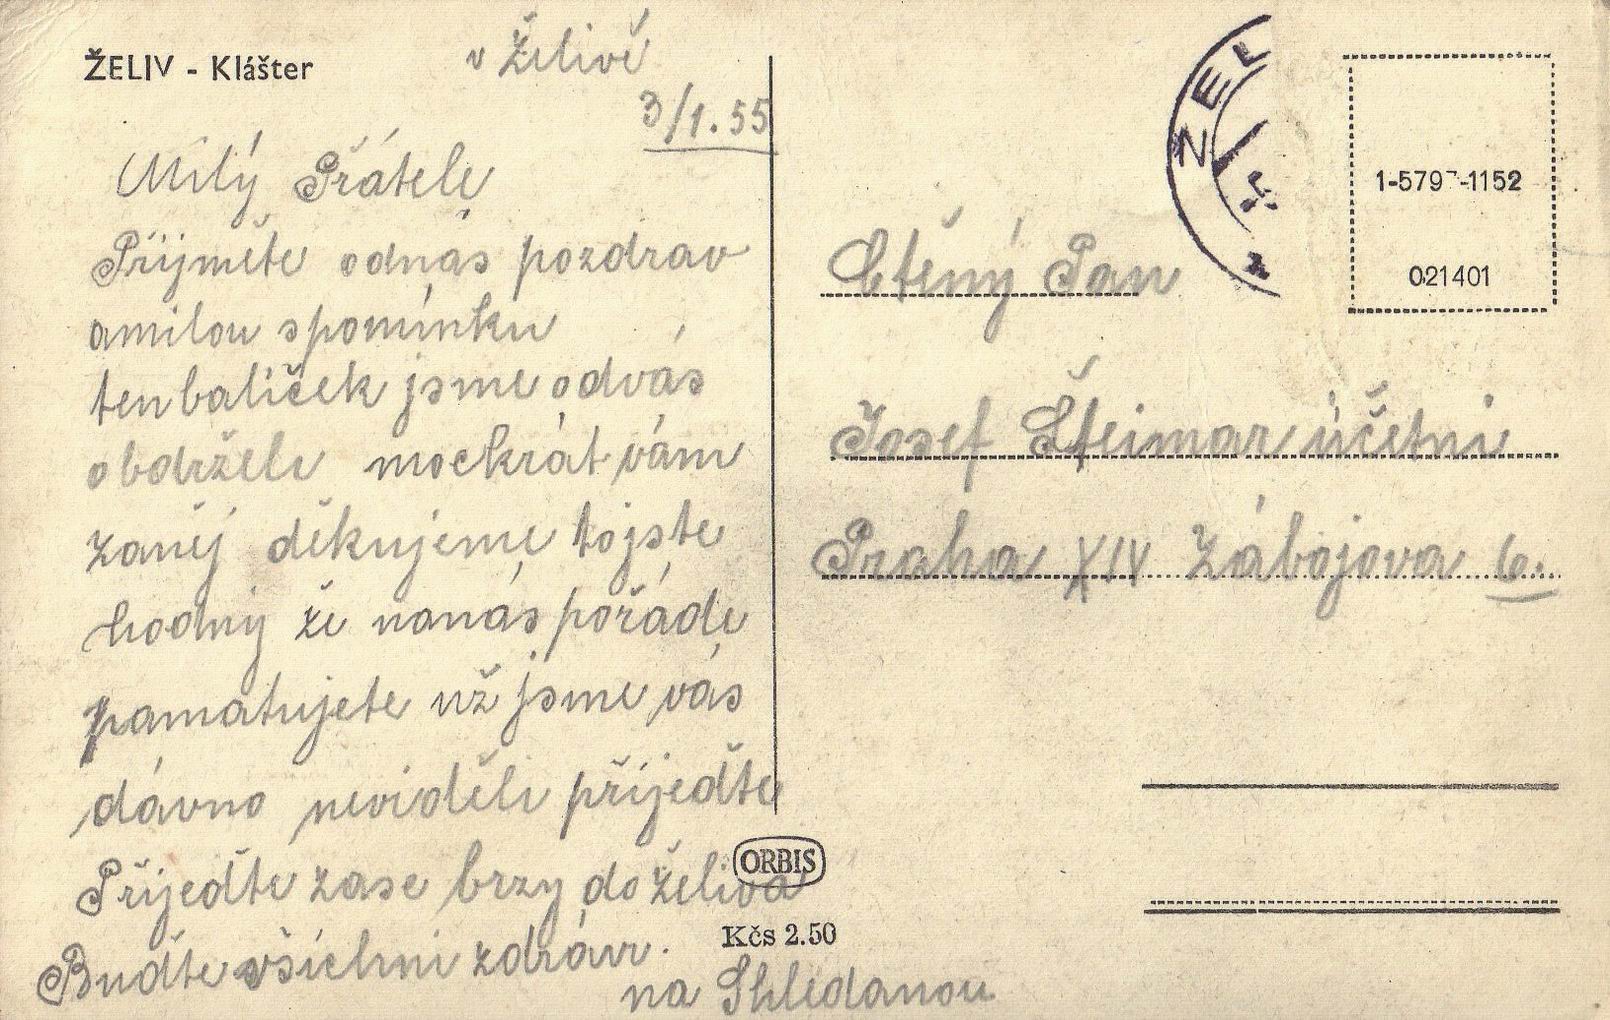 ŽELIV - Klášter
v Želivě
3/1.55
Milý Přátele
Přijměte odnás pozdrav
amilou spomínku
tenbalíček jsme odvás
obdrželi mockrát vám
zaněj děkujeme tojste
hodný že nanás pořáde
pamatujete už jsme vás
dávno neviděli přijeďte
Přijeďte zase brzy do želiva
Buďte všichni zdrávi.
na Shledanou
ORBIS
Kčs 2.50
ŽEL
1-5797-1152
021401
Ctěný Pan
Josef Šteimar účetni
Praha XIV Zábojova 6.